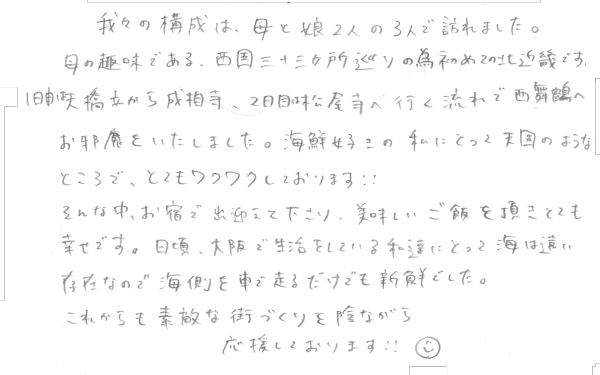 我々の構成は、母と娘2人の3人で訪れました。
母の趣味である、西国三十三ヶ所巡りの為初めての北近畿です。
1日目は天橋立から成相寺、2日目は松尾寺へ行く流れで西舞鶴へ
お邪魔をいたしました。海鮮好きの私にとって天国のような
ところで、とてもワクワクしております!!
そんな中、お宿で出迎えて下さり、美味しいご飯を頂きとても
幸せです。日頃、大阪で生活をしている私達にとって海は遠い
存在なので海側を車で走るだけでも新鮮でした。
これからも素敵な街づくりを陰ながら
応援しております!!